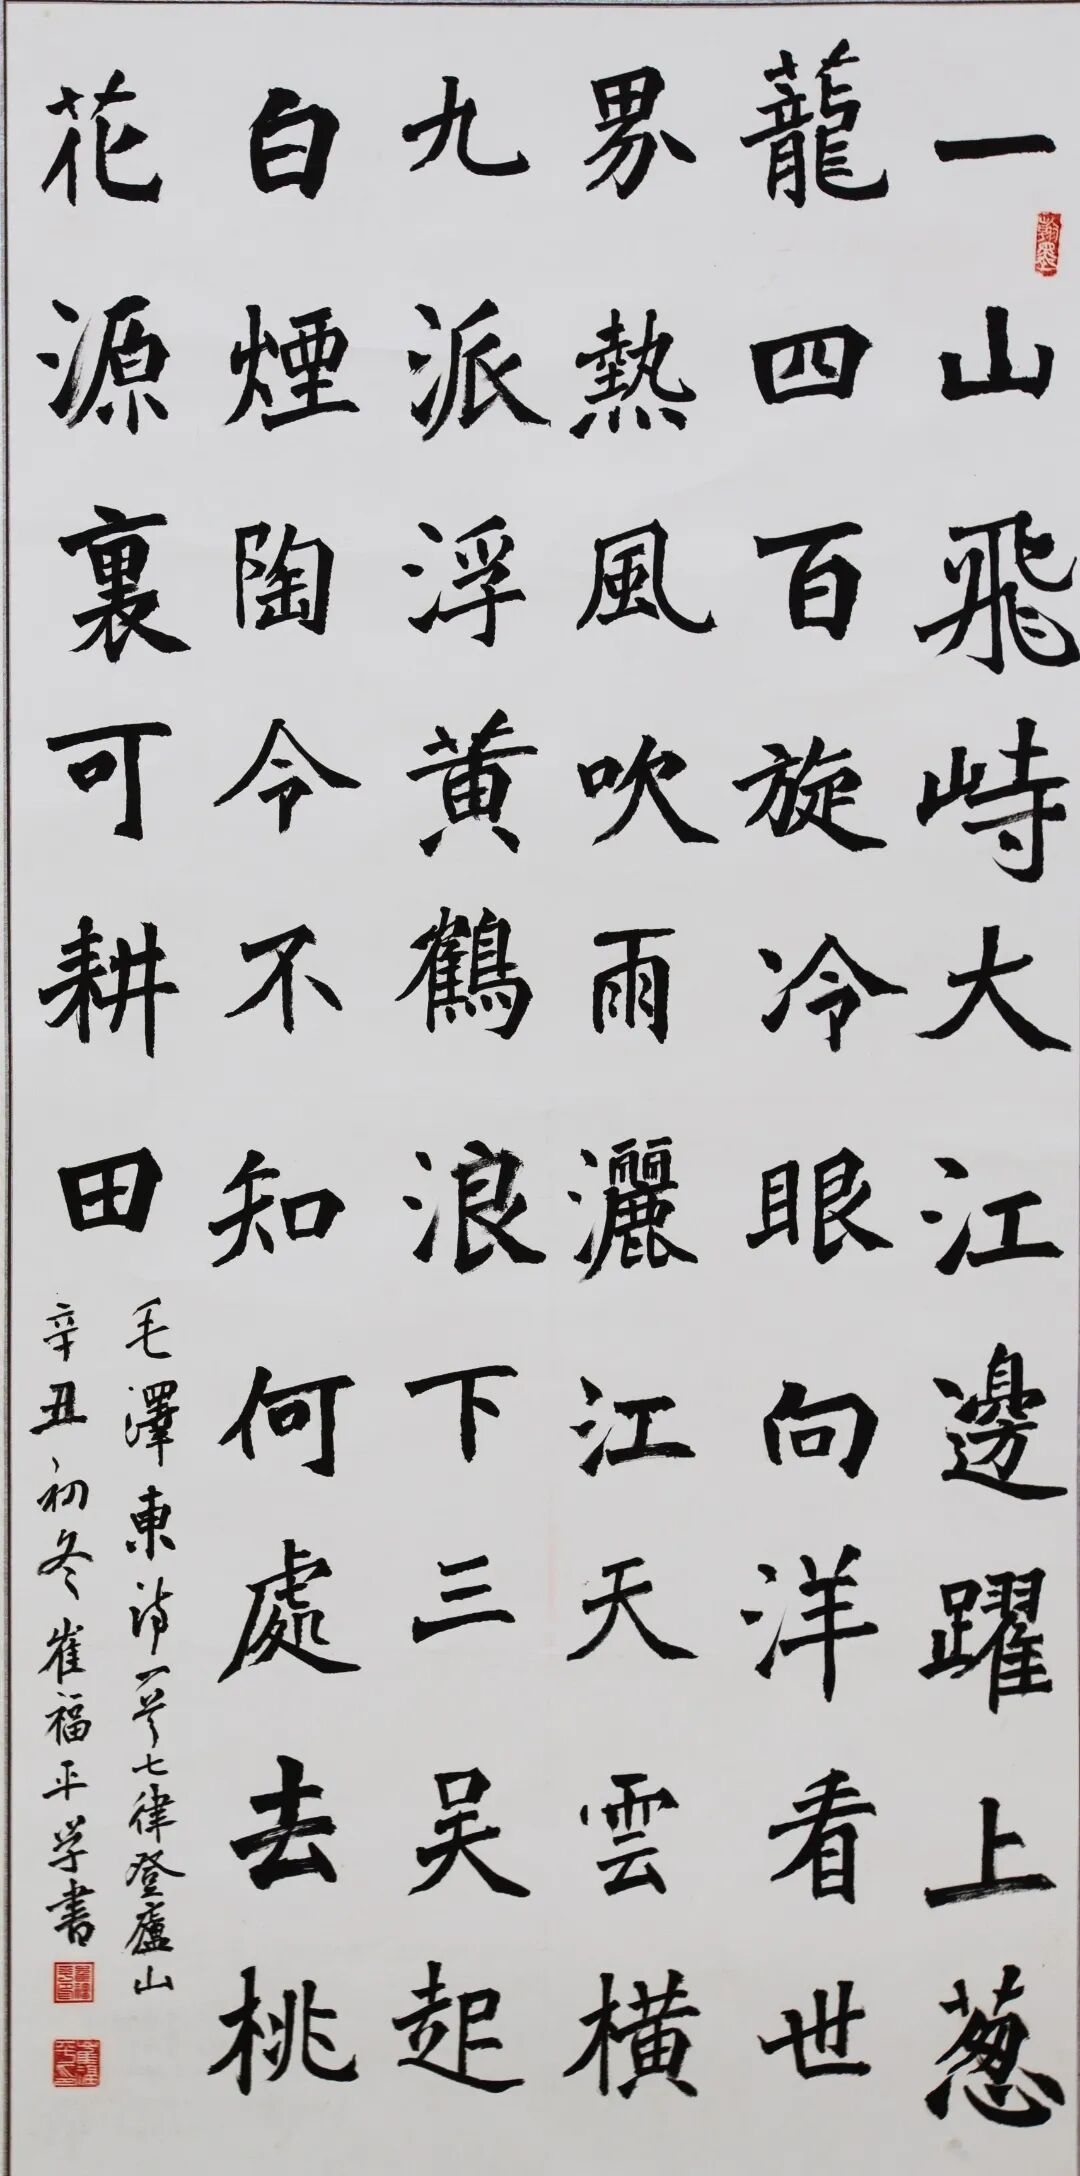 一山飛峙大江邊躍上葱
蘢四百旋冷眼向洋看世
界熱風吹雨灑江天雲橫
九派浮黄鶴浪下三吴起
白煙陶令不知何處去桃
花源裏可耕田
毛澤東詩一首七律登廬山
辛丑初冬崔福平学書
翰墨